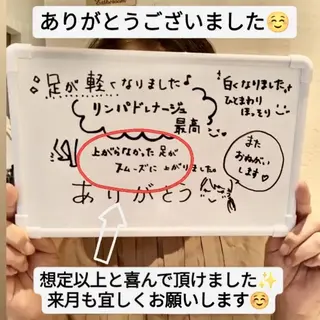 ありがとうございました☺️
足が軽くなりました♪
リンパドレナージュ
最高
白くなりました。
ひとまわり
ほっそり
上がらなかった足が
スムーズに上がりました。
また
おねがい
します♡
ありがとう
想定以上と喜んで頂けました✨
来月も宜しくお願いします☺️